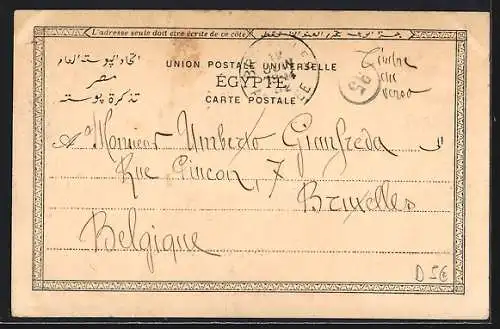 L'adresse seule doit être écrite de ce côté
UNION POSTALE UNIVERSELLE
ÉGYPTE
CARTE POSTALE
اتحاد البوستة العام
مصر
تذكرة بوسته
Timbre
au
verso
95
A Monsieur Umberto Gianfreda
Rue Pincon, 7
Bruxelles
Belgique
D 5€